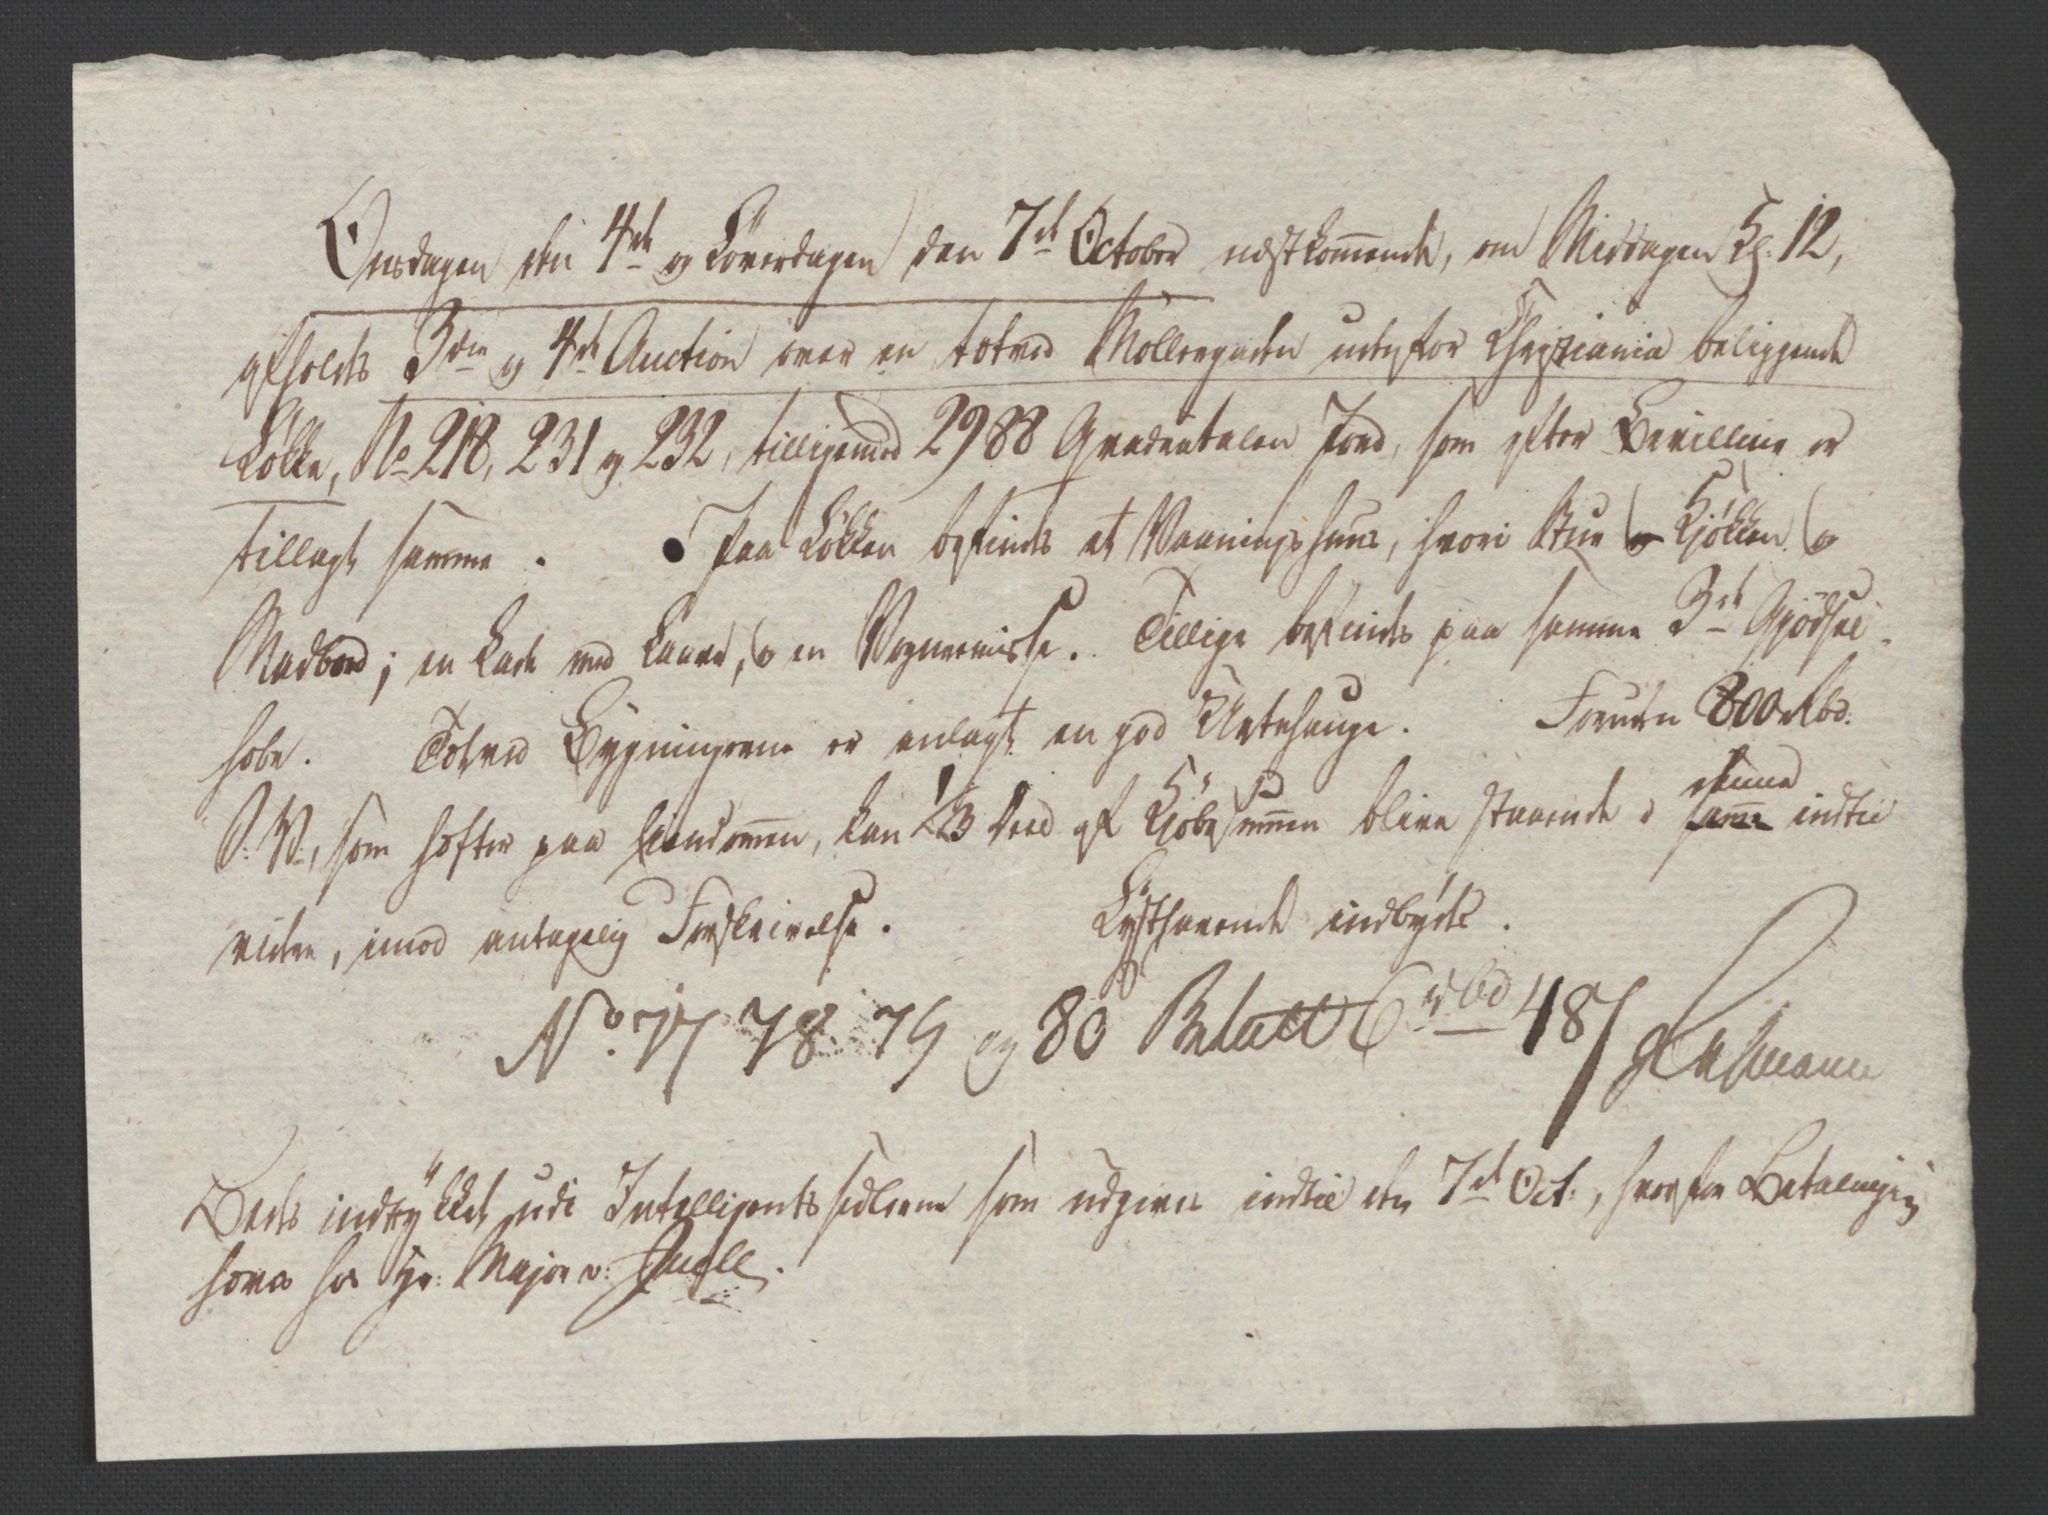 Onsdagen den 4de og Löverdagen den 7de October næstkommende, om Middagen Kl. 12,
afholdes 3die og 4de Auction over en tætved Möllergaden udenfor Christiania beliggende
Løkke, No 218, 231 og 232, tilligemed 2988 Qvadratalen Jord, som efter Bevilling er
tillagt samme. Paa Løkken befindes et Vaaningshuus, hvori Stue og Kjøkken og
Madbod; en Lade med Laave, og en Vognremisse. Tillige befindes paa samme 3de Gjødsel-
hobe. Tætved Bygningerne er anlagt en god Urtehauge. Foruden 800 Rbd.
S. V., som hæfter paa Eiendommen, kan 1/3 Deel af Kjöbesummen blive staaende i samme denne indtil
videre, imod antagelig Forskrivelse. Lysthavende indbydes.
No. 77 78 79 og 80 Betalt 6 rbd 48 s
Bedes indrykket udi Intelligentssedlerne som udgives indtil den 7de Oct:, hvorfor Betalingen
haves hos Hr: Major v: